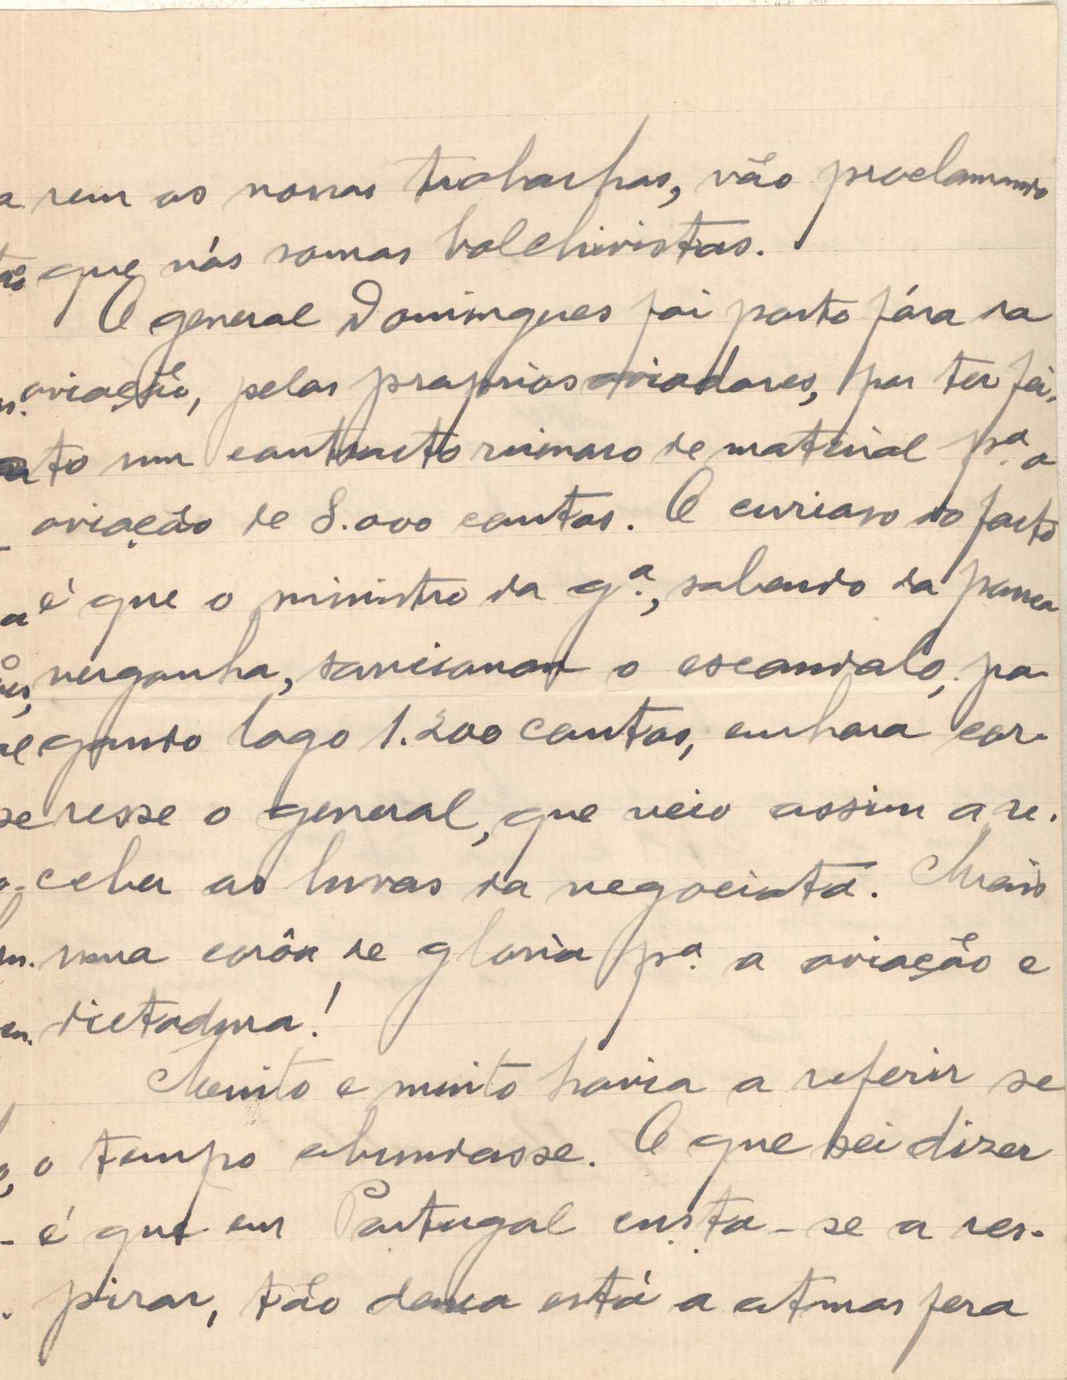 rem os nossos trabalhos, vão proclamando
que nós somos bolchivistas.
O general Domingues foi posto fóra da
aviação, pelos proprios aviadores, por ter fei-
to um contracto ruinoso de material pª a
aviação de 8.000 contos. O curioso do facto
é que o ministro da gª, sabendo da pouca
vergonha, sancionou o escandalo, pa-
gando logo 1.200 contos, embora cor-
resse o general, que veio assim a re-
ceber as luvas da negociata. Mais
uma corôa de gloria pª a aviação e
dictadura!
Muito e muito havia a referir se
o tempo abundasse. O que sei dizer
é que em Portugal custa-se a res-
pirar, tão densa está a atmosfera